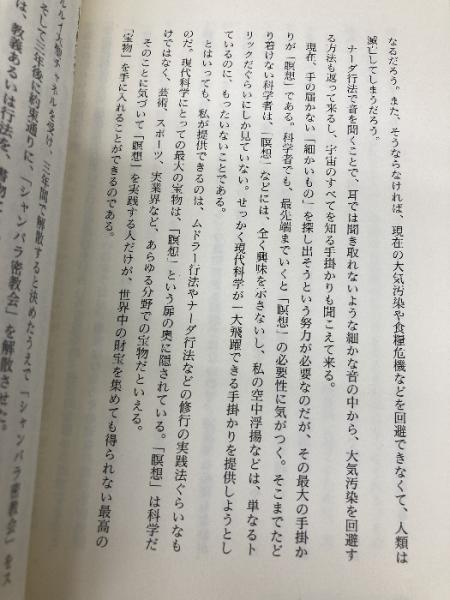 なるだろう。また、そうならなければ、現在の大気汚染や食糧危機などを回避できなくて、人類は
滅亡してしまうだろう。
ナーダ行法で音を聞くことで、耳では聞き取れないような細かな音の中から、大気汚染を回避す
る方法も返って来るし、宇宙のすべてを知る手掛かりも聞こえて来る。
現在、手の届かない「細かいもの」を探し出そうという努力が必要なのだが、その最大の手掛か
りが「瞑想」である。科学者でも、最先端までいくと「瞑想」の必要性に気がつく。そこまでたど
り着けない科学者は、「瞑想」などには、全く興味を示さないし、私の空中浮揚などは、単なるト
リックだぐらいにしか見ていない。せっかく現代科学が一大飛躍できる手掛かりを提供しようとし
ているのに、もったいないことである。
とはいっても、私が提供できるのは、ムドラー行法やナーダ行法などの修行の実践法ぐらいなも
のだ。現代科学にとっての最大の宝物は、「瞑想」という扉の奥に隠されている。「瞑想」は科学だ
けではなく、芸術、スポーツ、実業界など、あらゆる分野での宝物だといえる。
そのことに気づいて「瞑想」を実践する人だけが、世界中の財宝を集めても得られない最高の
「宝物」を手に入れることができるのである。
を受け、三年間で解散すると決めたうえで「シャンバラ密教会」をス
そして三年後に約束通りに、「シャンバラ密教会」を解散させた。
は、教義あるいは行法を、書物に